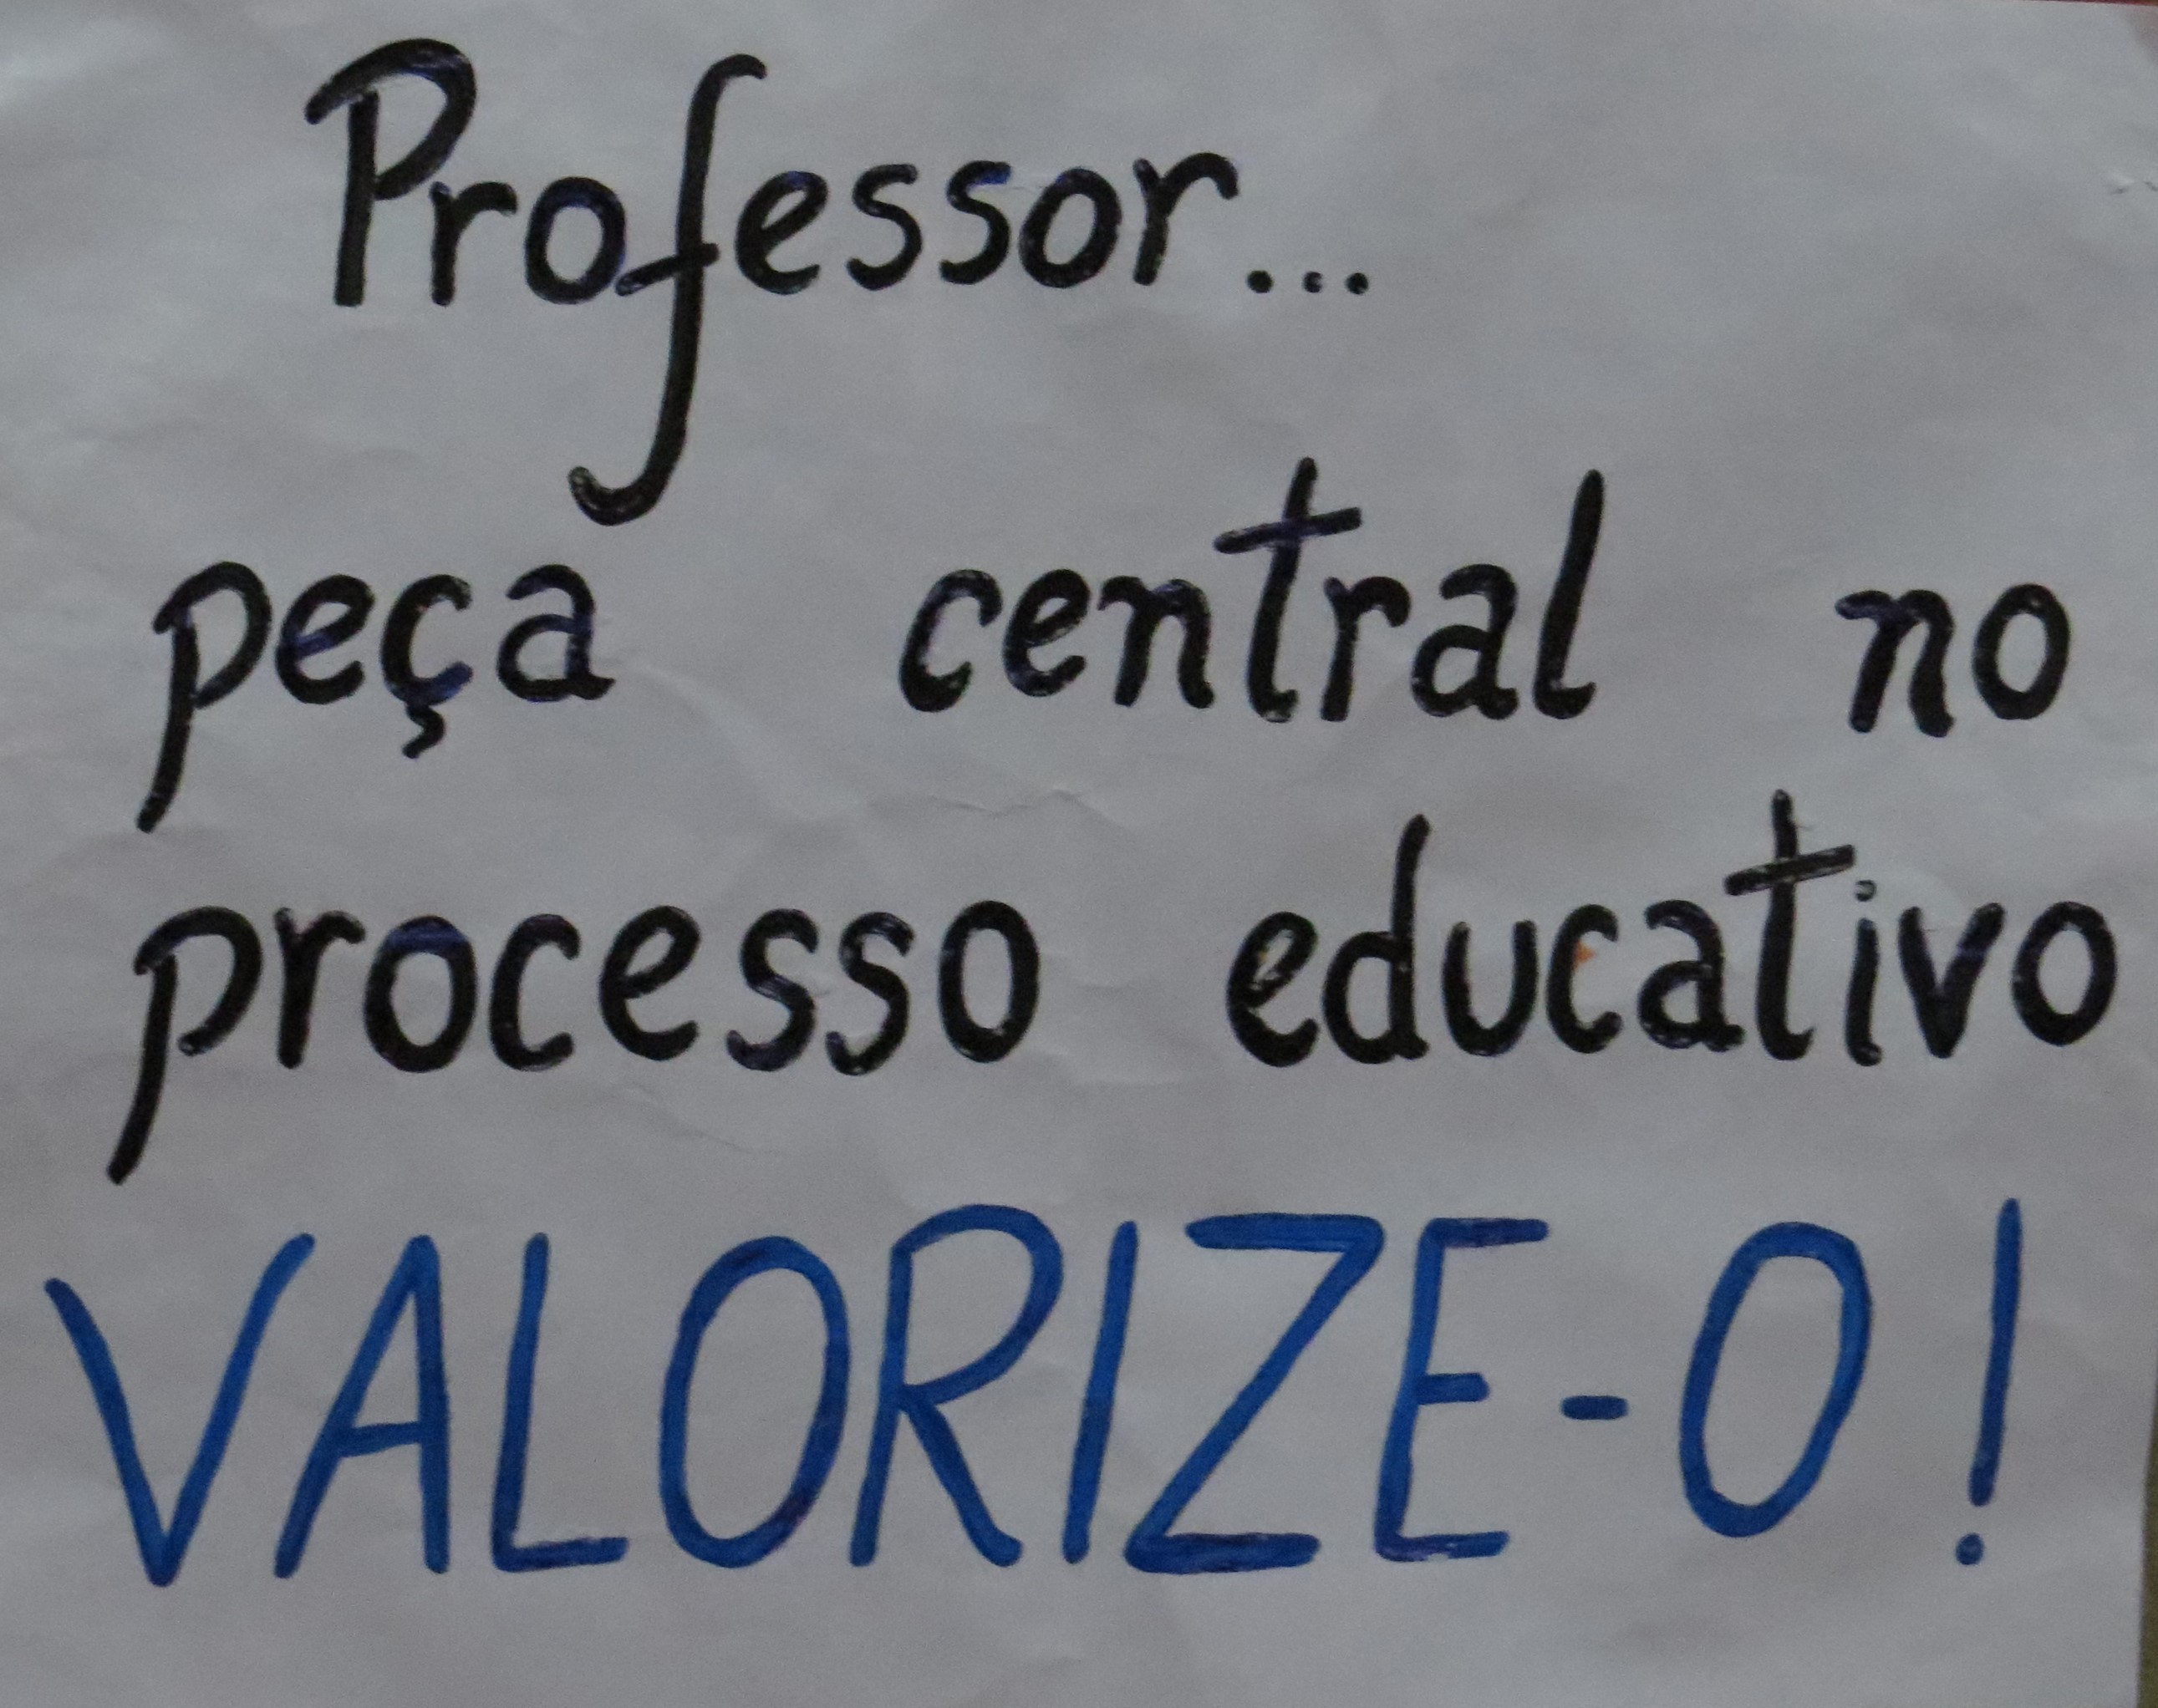 Professor...
peça central no
processo educativo
VALORIZE-O!